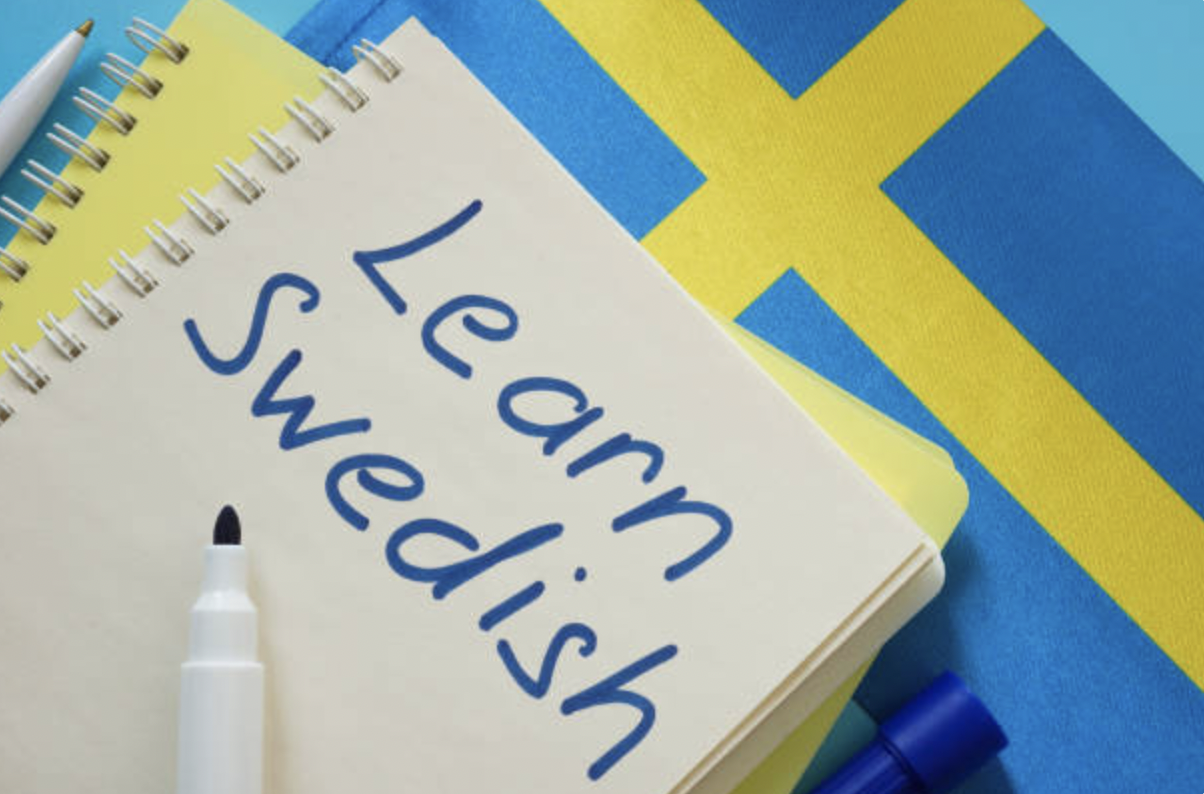 Learn
Swedish